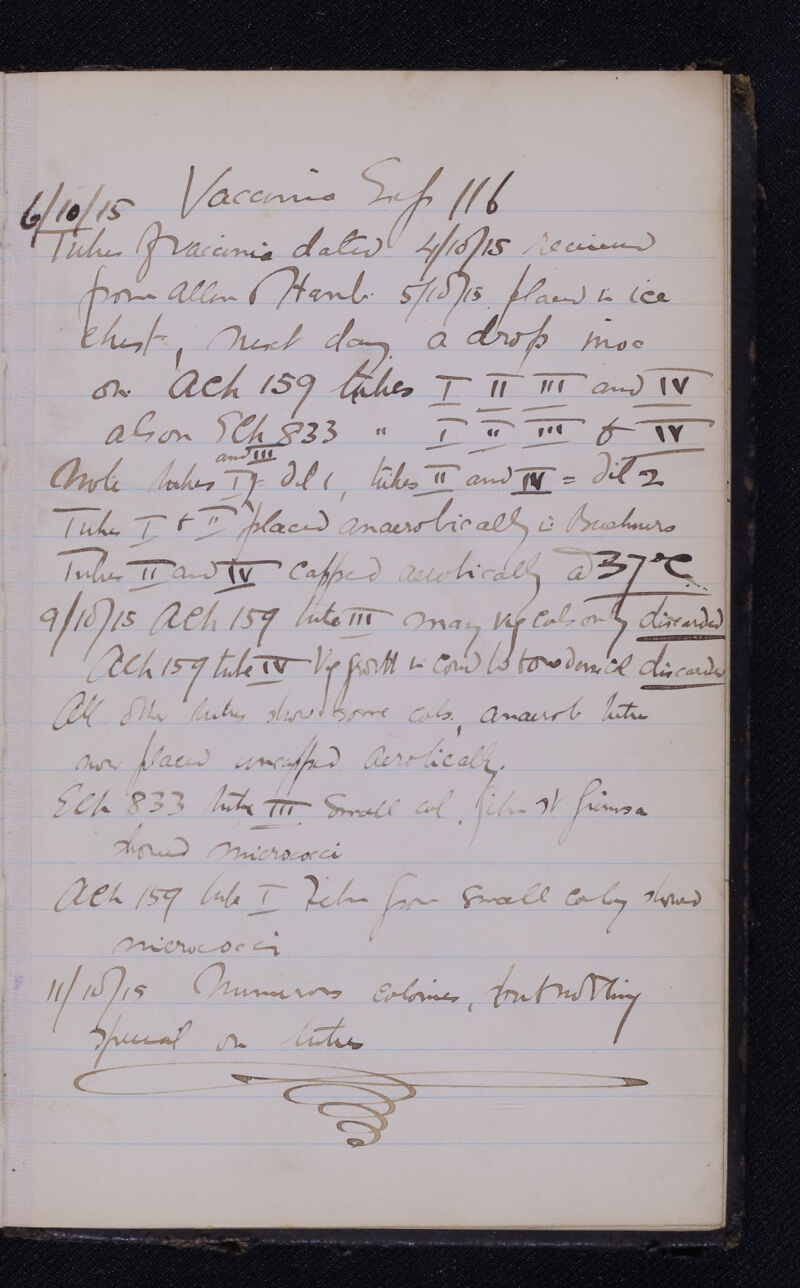 Vaccinia Exp 116
6/10/15
Tubes of vaccinia dated 4/10/15 received
from Allen & Hanb. 5/10/15 placed in ice
chest, next day a drop inoc
on Ach 159 tubes I II III and IV
also on Ech 833 " I II III & IV
and III
Note tubes I = dil 1, tubes II and IV = dil 2
Tubes I & II placed anaerobically in Buchners
Tubes II and IV capped aerobically at 37°C
9/10/15 Ach 159 tube III many veg cols only discarded
Ach 159 tube IV Veg growth in cond discarded
All other tubes show some cols, anaerob tubes
now placed uncapped aerobically.
Ech 833 tube III small col. film st
showed micrococci
Ach 159 tube I Film from small colony showed
micrococci
11/10/15 Numerous colonies, but nothing
special on tubes